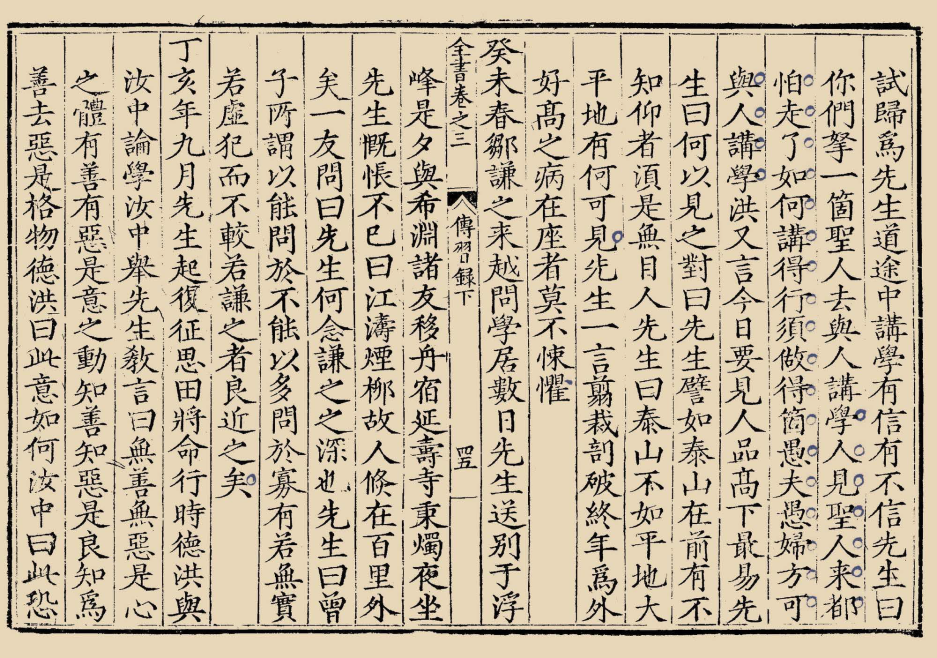 試歸爲先生道途中講學有信有不信先生曰
你們拏一箇聖人去與人講學人見聖人來都
怕走了如何講得行須做得箇愚夫愚婦方可
與人講學洪又言今日要見人品髙下最易先
生曰何以見之對曰先生譬如泰山在前有不
知仰者湏是無目人先生曰泰山不如平地大
平地有何可見先生一言翦裁剖破終年爲外
好髙之病在座者莫不悚懼
癸未春鄒謙之来越問學居數日先生送别于浮
全書卷之三 傳習録下 四五
峰是夕與希淵諸友移舟宿延壽寺秉燭夜坐
先生慨悵不已曰江濤煙栁故人倐在百里外
矣一友問曰先生何念謙之之深也先生曰曾
子所謂以能問於不能以多問於寡有若無實
若虛犯而不較若謙之者良近之矣
丁亥年九月先生起復征思田將命行時德洪與
汝中論學汝中舉先生教言曰無善無惡是心
之體有善有惡是意之動知善知惡是良知爲
善去惡是格物德洪曰此意如何汝中曰此恐